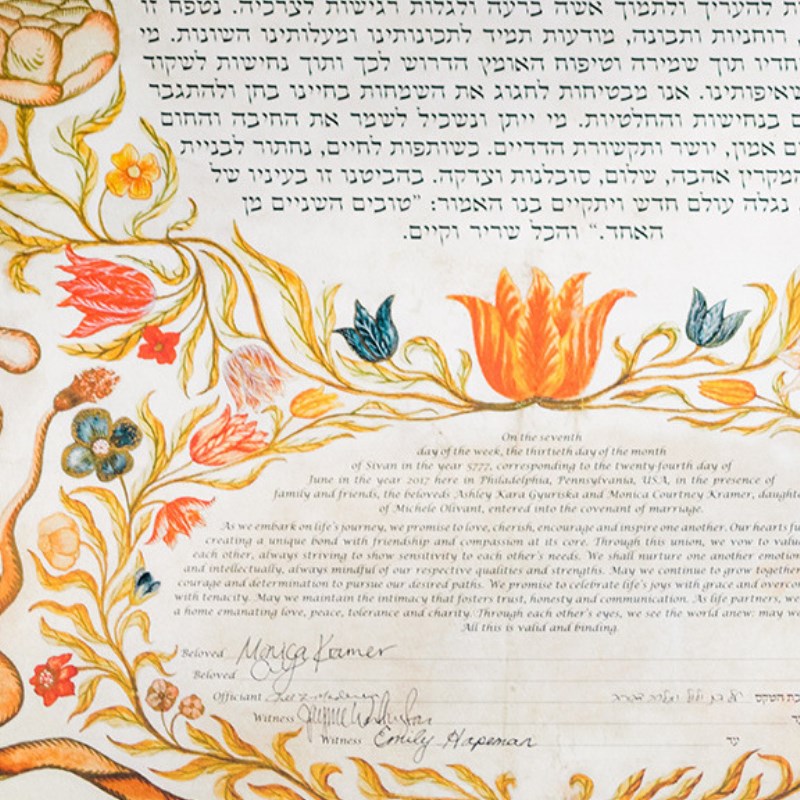 להעריך ולתמוך אשה ברעה ולגלות רגישות לצרכיה. נטפח זו
רוחניות ותבונה, מודעות תמיד לתכונותינו ומעלותינו השונות. מי
יחדיו תוך שמירה וטיפוח האומץ הדרוש לכך ותוך נחישות לשקוד
שאיפותינו. אנו מבטיחות לחגוג את השמחות בחיינו בחן ולהתגבר
בנחישות והחלטיות. מי ייתן ונשכיל לשמר את החיבה והחום
אמון, יושר ותקשורת הדדיים. כשותפות לחיים, נחתור לבניית
המקרין אהבה, שלום, סובלנות וצדקה. בהביטנו זו בעיניו של
נגלה עולם חדש ויתקיים בנו האמור: "טובים השניים מן
האחד." והכל שריר וקיים.
On the seventh
day of the week, the thirtieth day of the month
of Sivan in the year 5777, corresponding to the twenty-fourth day of
June in the year 2017 here in Philadelphia, Pennsylvania, USA, in the presence of
family and friends, the beloveds Ashley Kara Gyuriska and Monica Courtney Kramer, daughte
of Michele Olivant, entered into the covenant of marriage.
As we embark on life's journey, we promise to love, cherish, encourage and inspire one another. Our hearts fu
creating a unique bond with friendship and compassion at its core. Through this union, we vow to valu
each other, always striving to show sensitivity to each other's needs. We shall nurture one another emotion
and intellectually, always mindful of our respective qualities and strengths. May we continue to grow together
courage and determination to pursue our desired paths. We promise to celebrate life's joys with grace and overcom
with tenacity. May we maintain the intimacy that fosters trust, honesty and communication. As life partners, we
a home emanating love, peace, tolerance and charity. Through each other's eyes, we see the world anew: may we
All this is valid and binding.
Beloved Monica Kramer
Beloved
Officiant
Witness
Witness Emily Hapeman עד